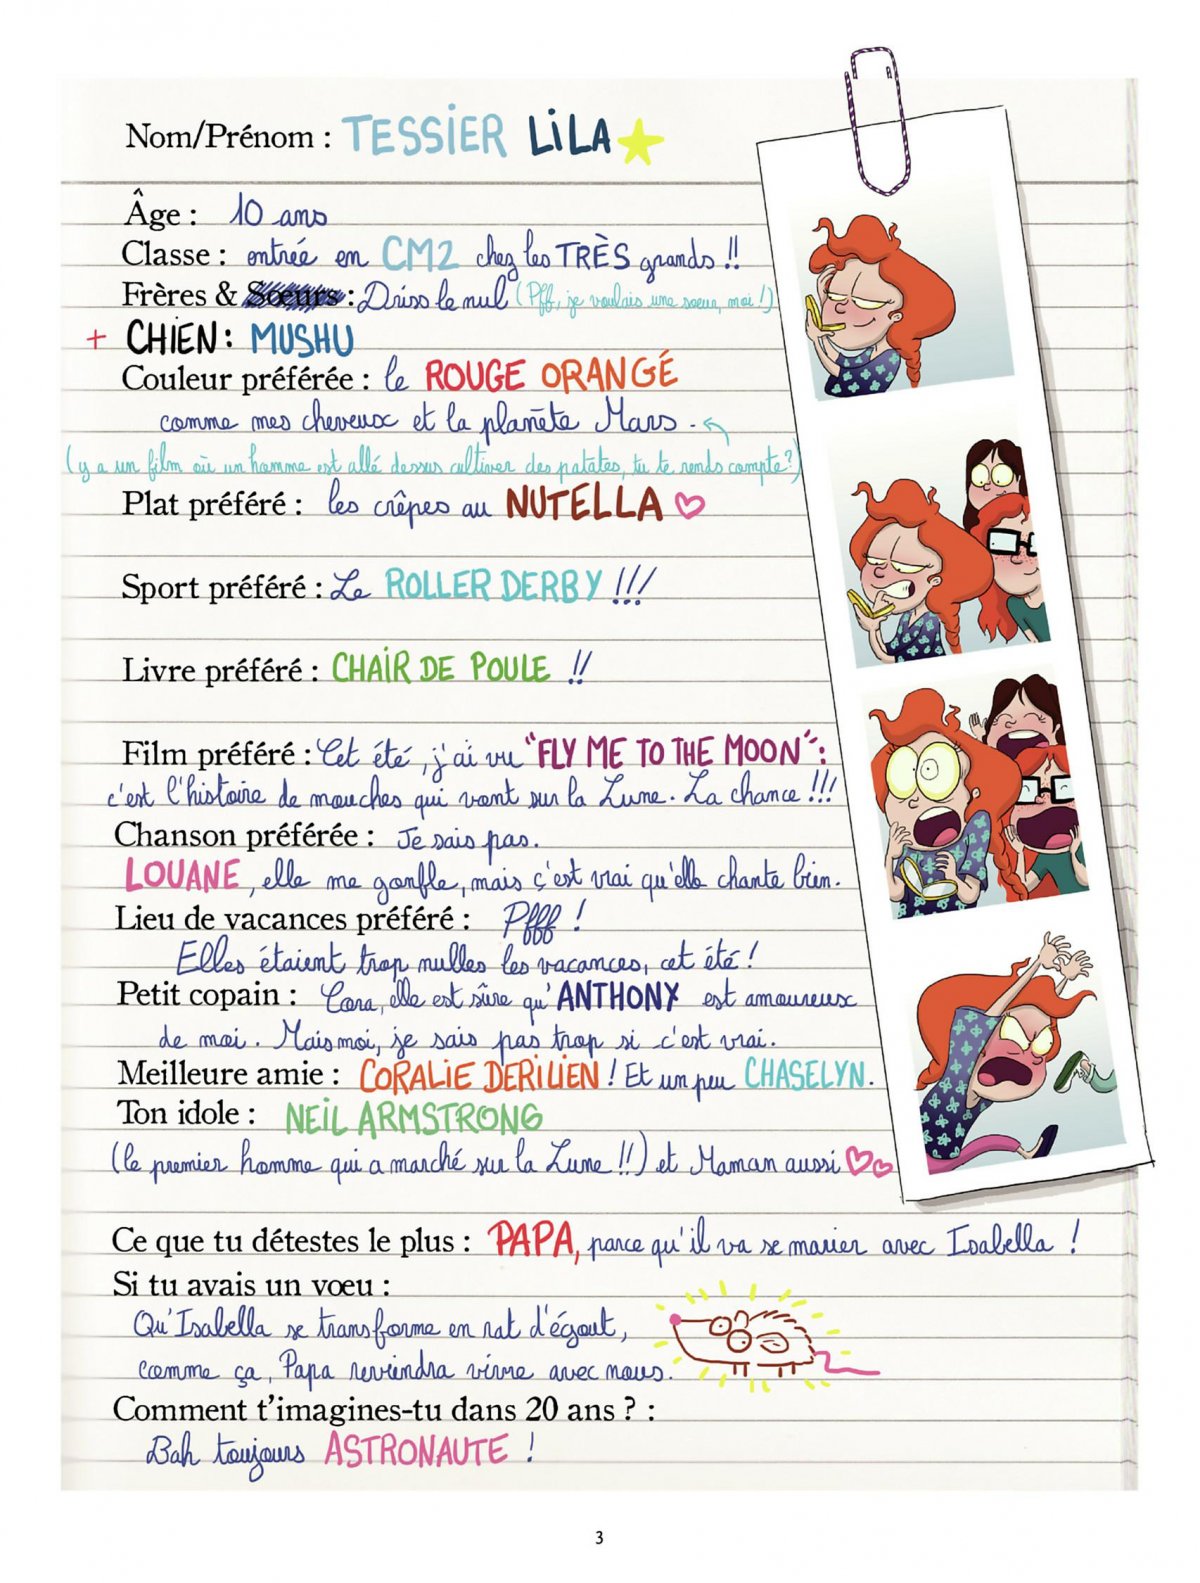 Nom/Prénom : TESSIER LILA
Âge : 10 ans
Classe : entrée en CM2 chez les TRÈS grands !!
Frères & Sœurs : Driss le nul (Pff, je voulais une sœur, moi !)
+ CHIEN : MUSHU
Couleur préférée : le ROUGE ORANGÉ
comme mes cheveux et la planète Mars.
(y a un film où un homme est allé dessus cultiver des patates, tu te rends compte ?)
Plat préféré : les crêpes au NUTELLA
Sport préféré : Le ROLLER DERBY !!!
Livre préféré : CHAIR DE POULE !!
Film préféré : Cet été, j'ai vu "FLY ME TO THE MOON" :
c'est l'histoire de mouches qui vont sur la Lune. La chance !!!
Chanson préférée : Je sais pas.
LOUANE, elle me gonfle, mais c'est vrai qu'elle chante bien.
Lieu de vacances préféré : Pffff !
Elles étaient trop nulles les vacances, cet été !
Petit copain : Cora, elle est sûre qu'ANTHONY est amoureux
de moi. Mais moi, je sais pas trop si c'est vrai.
Meilleure amie : CORALIE DERILIEN ! Et un peu CHASELYN.
Ton idole : NEIL ARMSTRONG
(le premier homme qui a marché sur la Lune !!) et Maman aussi
Ce que tu détestes le plus : PAPA, parce qu'il va se marier avec Isabella !
Si tu avais un vœu :
Qu'Isabella se transforme en rat d'égout,
comme ça, Papa reviendra vivre avec nous.
Comment t'imagines-tu dans 20 ans ? :
Bah toujours ASTRONAUTE !
3